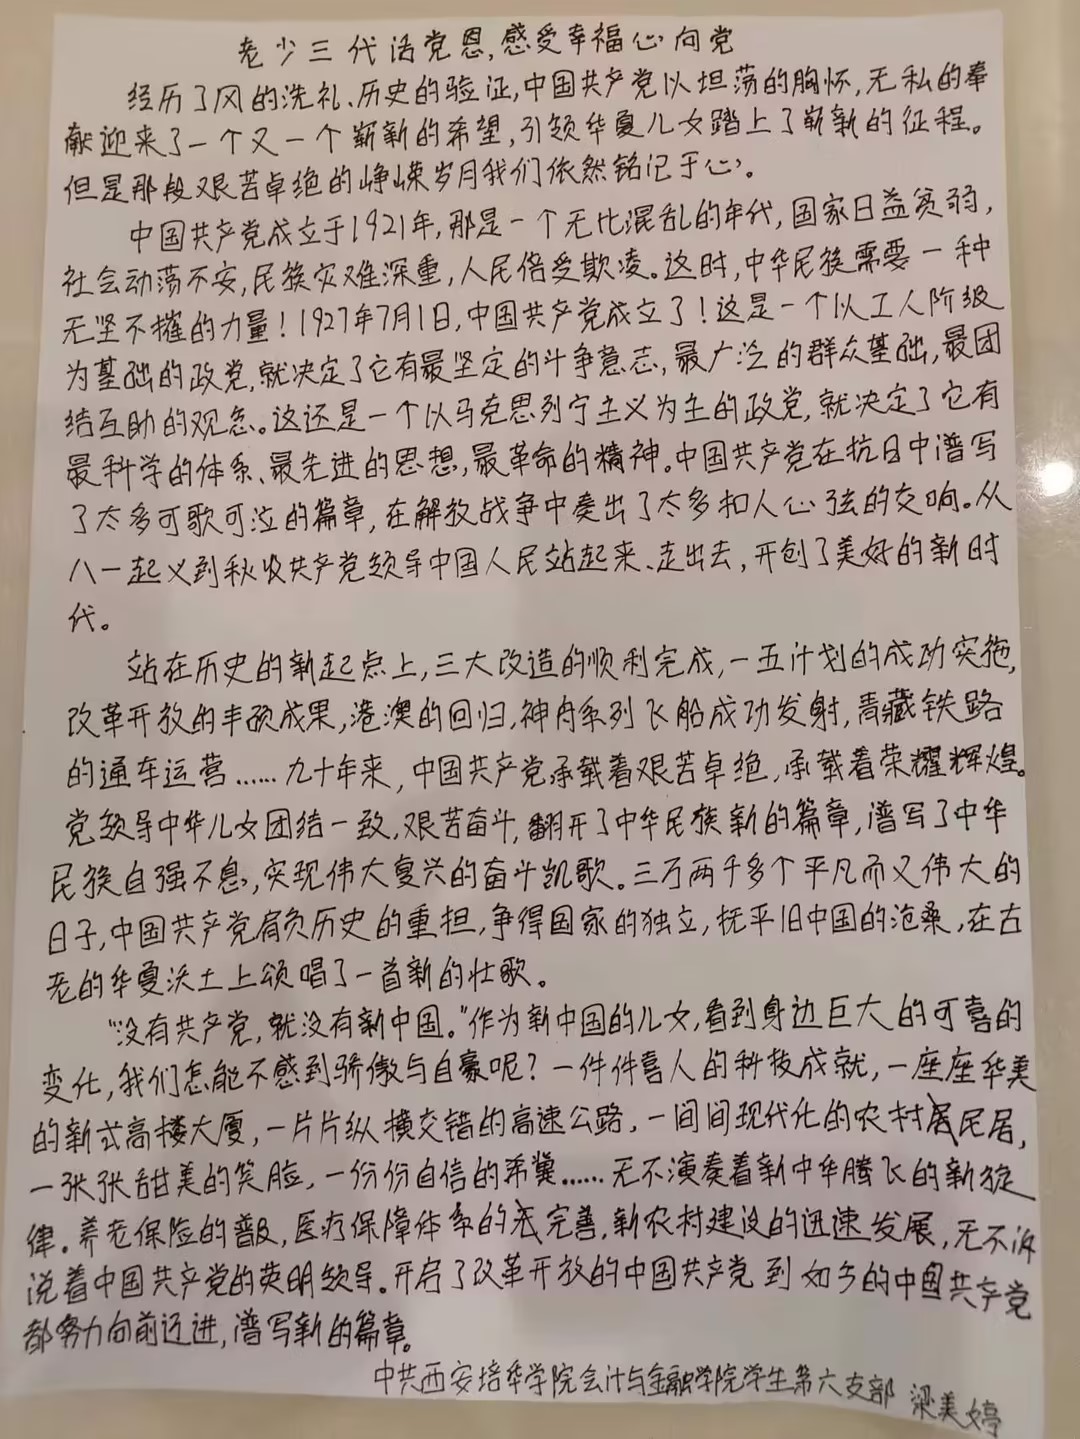 老少三代话党恩,感受幸福心向党
经历了风的洗礼、历史的验证,中国共产党以坦荡的胸怀,无私的奉
献迎来了一个又一个崭新的希望,引领华夏儿女踏上了崭新的征程。
但是那段艰苦卓绝的峥嵘岁月我们依然铭记于心。
中国共产党成立于1921年,那是一个无比混乱的年代,国家日益贫弱,
社会动荡不安,民族灾难深重,人民倍受欺凌。这时,中华民族需要一种
无坚不摧的力量!1927年7月1日,中国共产党成立了!这是一个以工人阶级
为基础的政党,就决定了它有最坚定的斗争意志,最广泛的群众基础,最团
结互助的观念。这还是一个以马克思列宁主义为主的政党,就决定了它有
最科学的体系、最先进的思想,最革命的精神。中国共产党在抗日中谱写
了太多可歌可泣的篇章,在解放战争中奏出了太多扣人心弦的交响。从
八一起义到秋收共产党领导中国人民站起来、走出去,开创了美好的新时
代。
站在历史的新起点上,三大改造的顺利完成,一五计划的成功实施,
改革开放的丰硕成果,港澳的回归,神舟系列飞船成功发射,青藏铁路
的通车运营……九十年来,中国共产党承载着艰苦卓绝,承载着荣耀辉煌。
党领导中华儿女团结一致,艰苦奋斗,翻开了中华民族新的篇章,谱写了中华
民族自强不息,实现伟大复兴的奋斗凯歌。三万两千多个平凡而又伟大的
日子,中国共产党肩负历史的重担,争得国家的独立,抚平旧中国的沧桑,在古
老的华夏沃土上颂唱了一首新的壮歌。
“没有共产党,就没有新中国。”作为新中国的儿女,看到身边巨大的可喜的
变化,我们怎能不感到骄傲与自豪呢?一件件喜人的科技成就,一座座华美
的新式高楼大厦,一片片纵横交错的高速公路,一间间现代化的农村民居,
一张张甜美的笑脸,一份份自信的希冀……无不演奏着新中华腾飞的新旋
律。养老保险的普及,医疗保障体系的完善,新农村建设的迅速发展,无不诉
说着中国共产党的英明领导。开启了改革开放的中国共产党到如今的中国共产党
都努力向前迈进,谱写新的篇章。
中共西安培华学院会计与金融学院学生第六支部 梁美婷